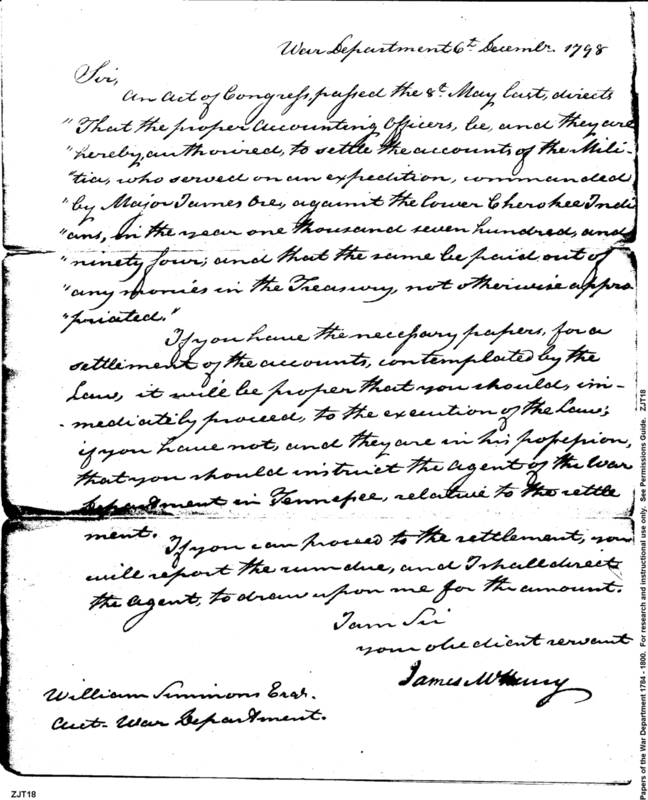 War Department 6th Decembr. 1798
Sir,
An Act of Congress, passed the 8th May last, directs
"That the proper Accounting Officers, be, and they are
"hereby, authorized, to settle the accounts of the Mili-
"tia, who served on an expedition, commanded
"by Major James Ore, against the lower Cherokee Indi
"ans, in the year one thousand seven hundred, and
"ninety four; and that the same be paid out of
"any monies in the Treasury, not otherwise appro
"priated."
If you have the necessary papers, for a
settlement of the accounts, contemplated by the
Law, it will be proper that you should, im-
-mediately proceed, to the execution of the Law;
if you have not, and they are in his possession,
that you should instruct the agent of the War
Department in Tennessee, relative to the settle
ment.
If you can proceed to the settlement, you
will report the sum due, and I shall direct
the agent, to draw upon me for the amount.
I am Sir
your obedient servant
James McHenry
William Simmons Esqr.
Acct. War Department.
Papers of the War Department 1784 - 1800. For research and instructional use only. See Permissions Guide. ZJT18
ZJT18